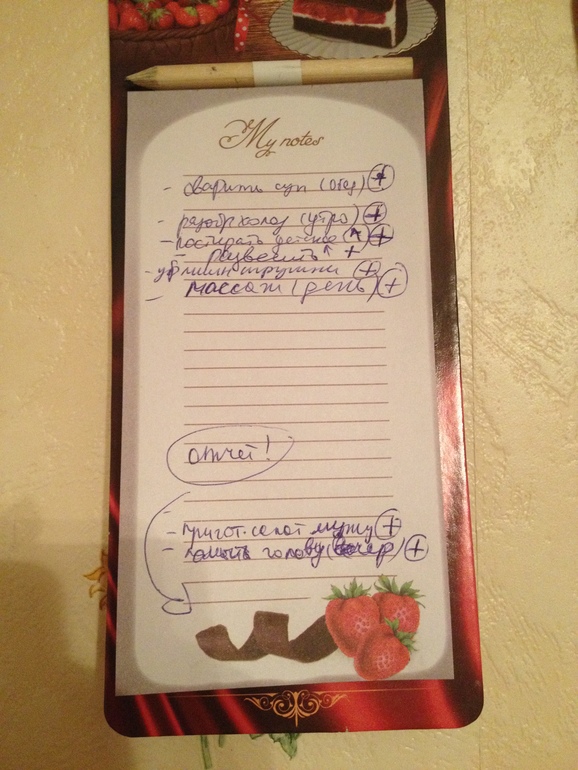 My notes
- сварить суп (обед) +
- разобр холод (утро) +
- постирать детское (↑) +
- развесить ↑ +
- уб лишн игрушки +
- массаж (день) +
отчет!
-
- пригот. салат мужу +
- помыть голову (вечер) +